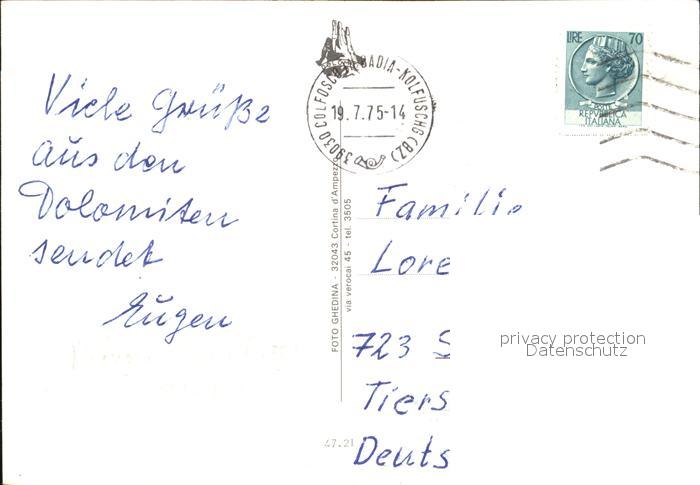 Viele Grüße
aus den
Dolomiten
sendet
Eugen
39030 COLFOSCO BADIA-KOLFUSCHG (BZ)
19.7.75-14
LIRE 70
REPVBBLICA
ITALIANA
FOTO GHEDINA - 32043 Cortina d'Ampezzo
via verocai 45 - tel. 3505
Familie
Lore
723 S
Tiers
Deuts
47.21
privacy protection
Datenschutz